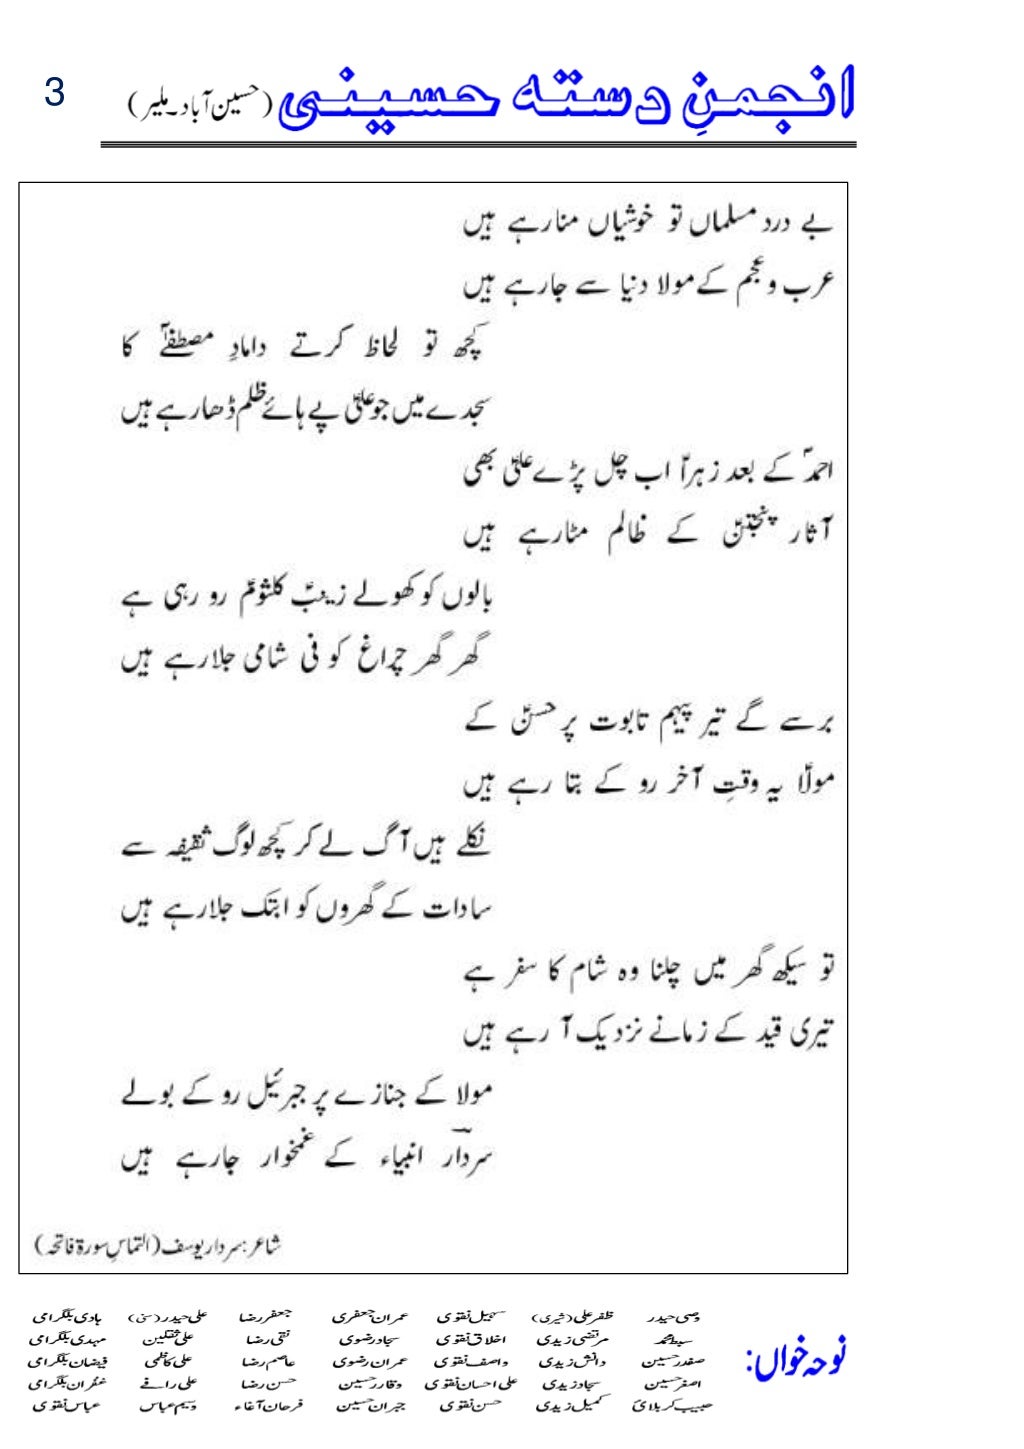 انجمنِ دستہ حسینی (حسین آباد۔ملیر)
3
بے درد مسلماں تو خوشیاں منارہے ہیں
عرب و عجم کے مولا دنیا سے جارہے ہیں
کچھ تو لحاظ کرتے دامادِ مصطفےٰؐ کا
سجدے میں جو علیؑ پے ہائے ظلم ڈھارہے ہیں
احمدؐ کے بعد زہراؑ اب چل پڑے علیؑ بھی
آثار پنجتنؑ کے ظالم مٹارہے ہیں
بالوں کو کھولے زینبؑ کلثومؑ رو رہی ہے
گھر گھر چراغ کو فی شامی جلارہے ہیں
برسے گے تیر پیہم تابوت پر حسنؑ کے
مولاؑ یہ وقتِ آخر رو کے بتا رہے ہیں
نکلے ہیں آگ لے کر کچھ لوگ ثقیفہ سے
سادات کے گھروں کو ابتک جلارہے ہیں
تو سیکھ گھر میں چلنا وہ شام کا سفر ہے
تیری قید کے زمانے نزدیک آ رہے ہیں
مولا کے جنازے پر جبرئیل رو کے بولے
سردارؐ انبیاء کے غمخوار جارہے ہیں
شاعر:سردار یوسف (التماسِ سورۃ فاتحہ)
نوحہ خواں:
وصی حیدر ظفر علی (شیری) سہیل نقوی عمران جعفری جعفر رضا علی حیدر (سنی) ہادی بلگرامی
سبط محمد مرتضیٰ زیدی اخلاق نقوی سجاد رضوی نقی رضا علی ثقلین مہدی بلگرامی
صفدر حسین دانش زیدی واصف نقوی عمران رضوی عاصم رضا علی کاظمی فیضان بلگرامی
اصغر حسین سجاد زیدی علی احسان نقوی وقار حسین حسن رضا علی رافع غفران بلگرامی
حبیب کربلائی کمیل زیدی حسن نقوی جبران حسین فرحان آغاء وسیم عباس عباس نقوی